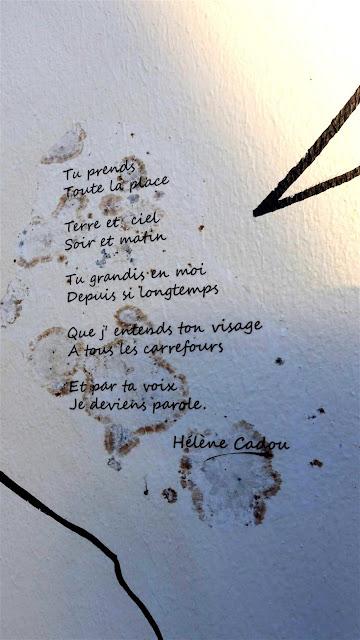 Tu prends
Toute la place
Terre et ciel
Soir et matin
Tu grandis en moi
Depuis si longtemps
Que j' entends ton visage
A tous les carrefours
Et par ta voix
Je deviens parole.
Hélène Cadou